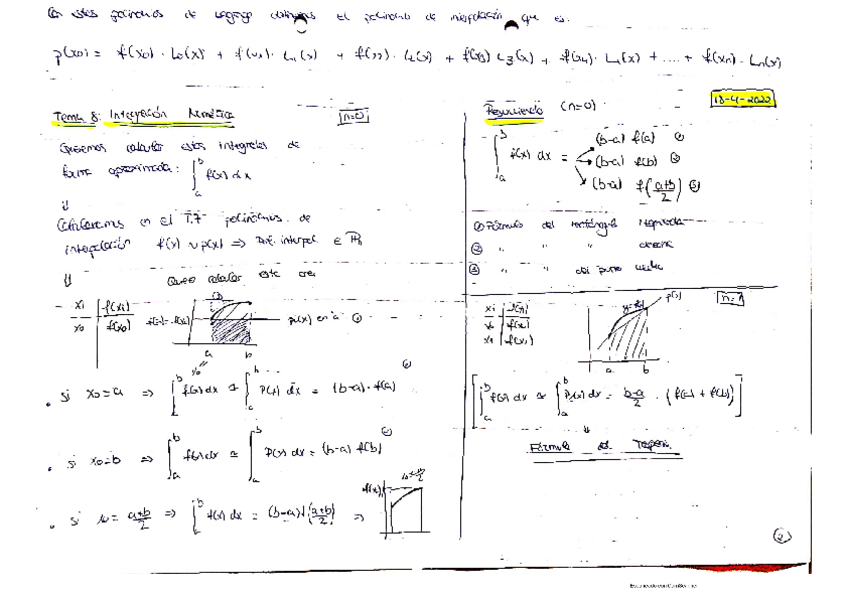 Con estos polinomios de Lagrange obtenemos el polinomio de interpolación que es:
p(x) = f(x0) · L0(x) + f(x1) · L1(x) + f(x2) · L2(x) + f(x3) L3(x) + f(x4) · L4(x) + .... + f(xn) · Ln(x)
Tema 8: Integración Numérica
n=0
Queremos calcular estas integrales de
forma aproximada: ∫_a^b f(x) dx
⇓
Calculamos en el T.7 polinomios de
interpolación f(x) ∼ p(x) ⇒ interpol ∈ Pn
⇓
Quiero calcular este area
xi | f(xi)
x0 | f(x0)
p(x) en a ①
a b
• Si x0=a ⇒ ∫_a^b f(x) dx ≃ ∫_a^b P(x) dx = (b-a) · f(a)
• Si x0=b ⇒ ∫_a^b f(x) dx ≃ ∫_a^b P(x) dx = (b-a) f(b)
• Si x0 = a+b/2 ⇒ ∫_a^b f(x) dx = (b-a) f(a+b/2) ⇒
f(x)
18-4-2022
Resumiendo (n=0)
∫_a^b f(x) dx =
(b-a) f(a) ①
(b-a) f(b) ②
(b-a) f(a+b/2) ③
① Fórmula del rectángulo izquierda
② " " " derecha
③ " " del punto medio
n=1
xi | f(xi)
x0 | f(x0)
x1 | f(x1)
p(x)
a b
[∫_a^b f(x) dx ≃ ∫_a^b P(x) dx = b-a/2 · (f(a) + f(b))]
⇓
Fórmula del Trapecio.
2
Escaneado con CamScanner